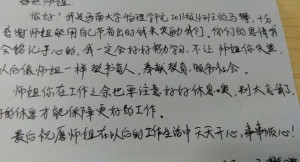 师姐:
你好!我是西南大学 物理学院2013级 的马腾,十分
感谢师姐能用自己节省出的钱来资助我们,你们的恩情我
会铭记于心的,我一定会好好努力学习,不让师姐你失望,
以后像师姐一样教书育人,奉献教育,服务社会。
师姐你在工作之余也要注意好好休息噢,别太忘了,
好的休息才能保障更好的工作。
最后祝愿师姐在以后的工作生活中天天开心,事事顺心!